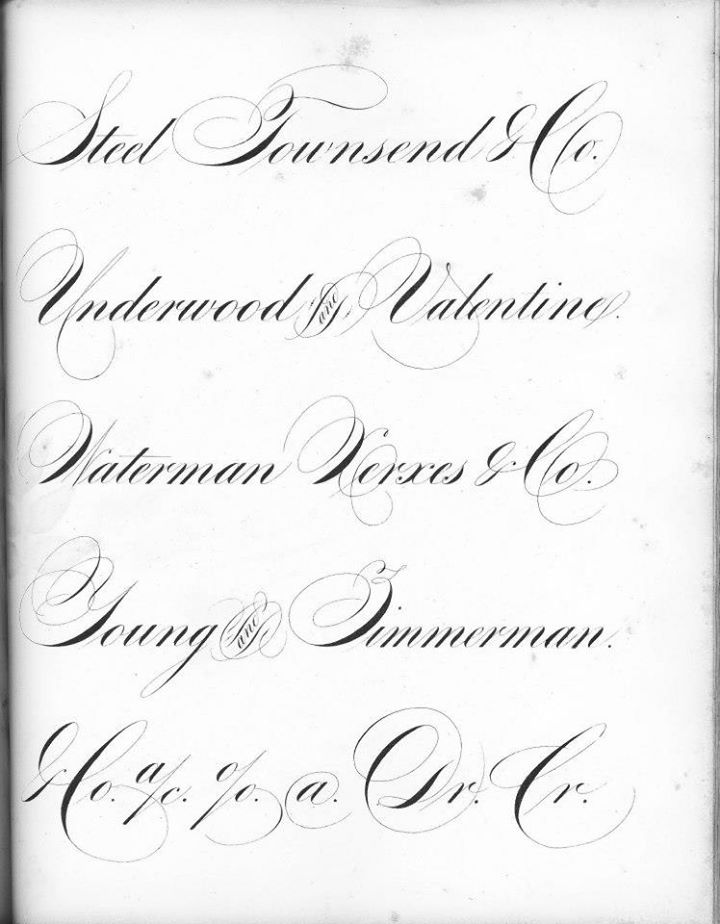 Steel Townsend & Co.
Underwood and Valentine.
Waterman Xerxes & Co.
Young and Zimmerman.
& Co. a/c. %. @. Dr. Cr.